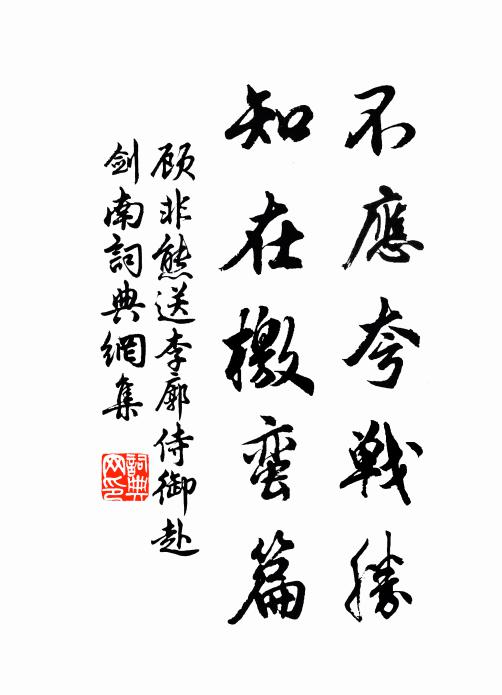 不應夸戰勝
知在檄蛮篇
顾非熊送李廓侍御赴
劍南詞典網集
詞典网印